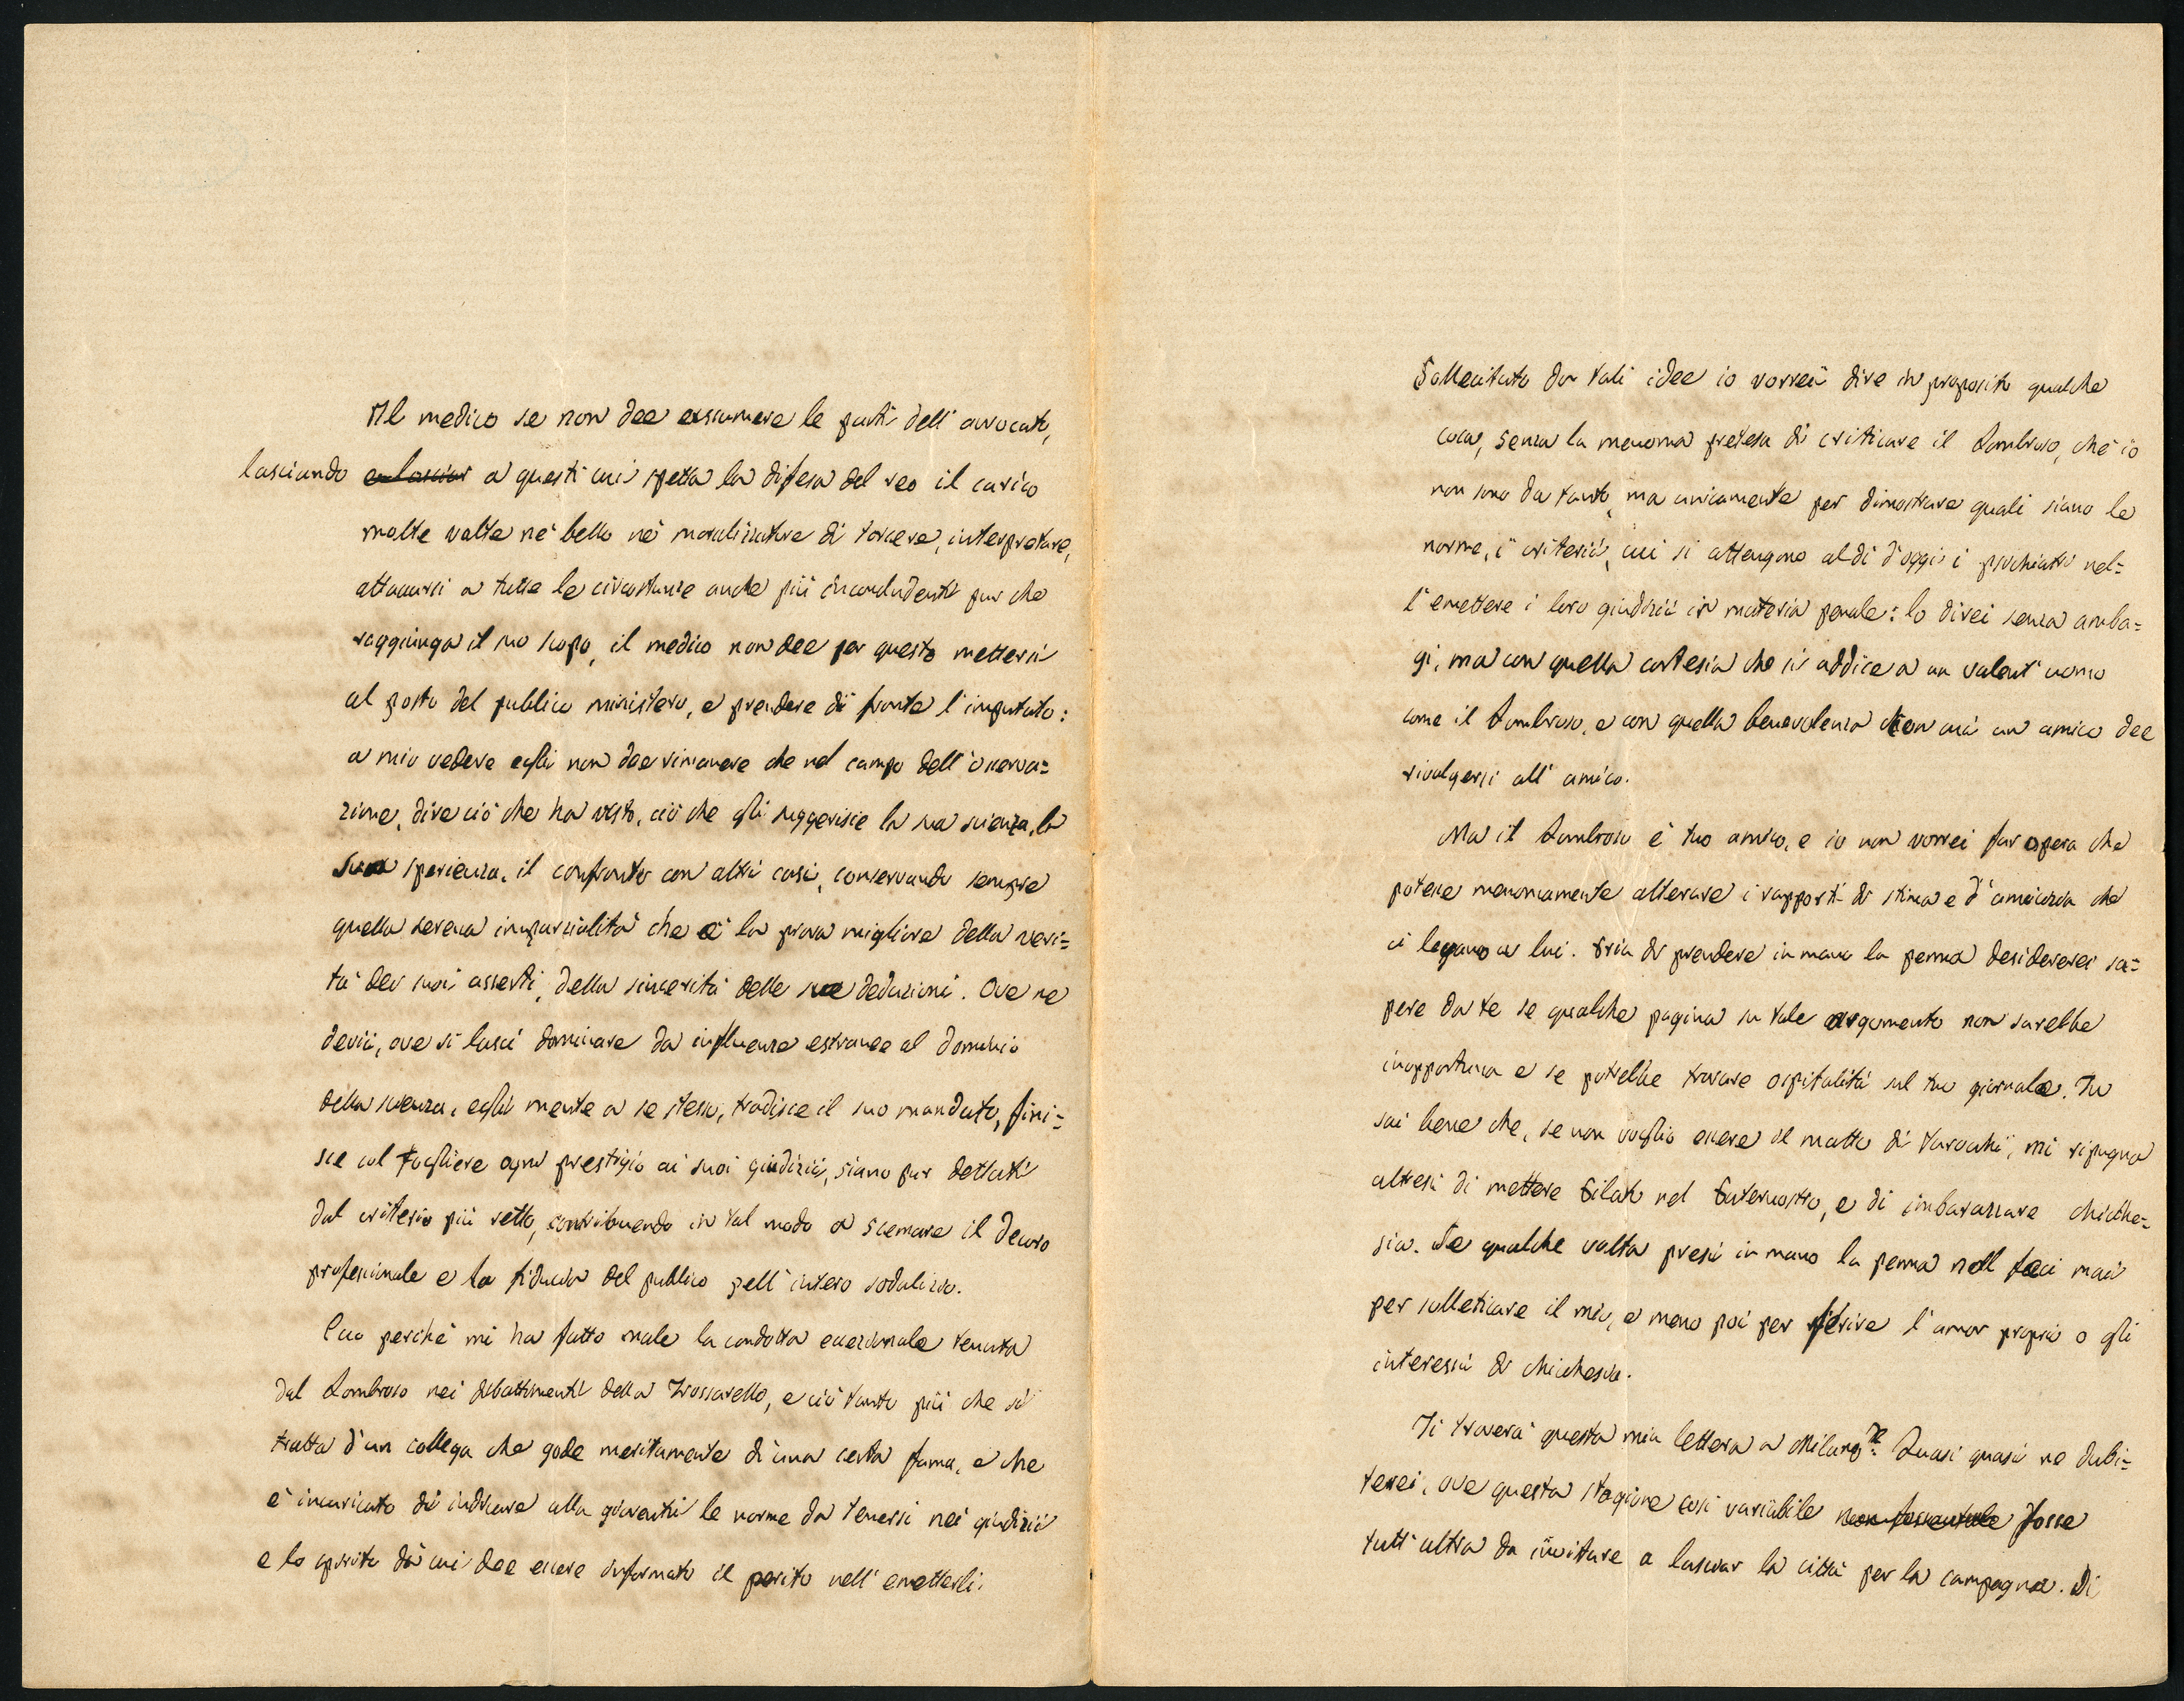 Il medico se non dee assumere le parti dell' avvocato,
lasciando e lasciar a questi cui spetta la difesa del reo il carico
molte volte nè bello nè moralizzatore di torcere, interpretare,
attaccarsi a tutte le circostanze anche più inconcludenti pur che
raggiunga il suo scopo, il medico non dee per questo mettersi
al posto del pubblico ministero, e prendere di fronte l' imputato:
a mio vedere egli non dee rimanere che nel campo dell' osserva=
zione, dire ciò che ha visto, ciò che gli suggerisce la sua scienza, la
sua sperienza, il confronto con altri casi, conservando sempre
quella serena imparzialità che è la prova migliore della veri=
tà dei suoi asserti, della sincerità delle sue deduzioni. Ove ne
devii, ove si lasci dominare da influenze estranee al dominio
della scienza, egli mente a se stesso, tradisce il suo mandato, fini=
sce col togliere ogni prestigio ai suoi giudizii, siano pur dettati
dal criterio più retto, contribuendo in tal modo a scemare il decoro
professionale e la fiducia del pubblico nell' intero sodalizio.
Ecco perchè mi ha fatto male la condotta eccezionale tenuta
dal Lombroso nei dibattimenti della Trossarello, e ciò tanto più che si
tratta d' un collega che gode meritamente di una certa fama, e che
è incaricato di indicare alla gioventù le norme da tenersi nei giudizii
e lo spirito di cui dee essere informato il perito nell' emetterli.
Sollecitato da tali idee io vorrei dire in proposito qualche
cosa, senza la menoma pretesa di criticare il Lombroso, chè io
non sono da tanto, ma unicamente per dimostrare quali siano le
norme, i criterii, cui si attengono al dì d'oggi i psichiatri nel=
l' emettere i loro giudizii in materia penale: lo direi senza amba=
gi, ma con quella cortesia che si addice a un valent' uomo
come il Lombroso, e con quella benevolenza con cui un amico dee
rivolgersi all' amico.
Ma il Lombroso è tuo amico, e io non vorrei far opera che
potesse menomamente alterare i rapporti di stima e d' amicizia che
ci legano a lui. Pria di prendere in mano la penna desidererei sa=
pere da te se qualche pagina su tale argomento non sarebbe
inopportuna e se potrebbe trovare ospitalità sul tuo giornale. Tu
sai bene che, se non voglio essere il matto di tarocchi, mi ripugna
altresì di mettere Pilato nel Paternostro, e di imbarazzare chicche=
sia. Se qualche volta presi in mano la penna nol feci mai
per solleticare il mio, e meno poi per ferire l' amor proprio o gli
interessi di chichesia.
Ti troverà questa mia lettera a Milano? Quasi quasi ne dubi=
terei, ove questa stagione così variabile fosse
tutt' altro da invitare a lasciar la città per la campagna. Di